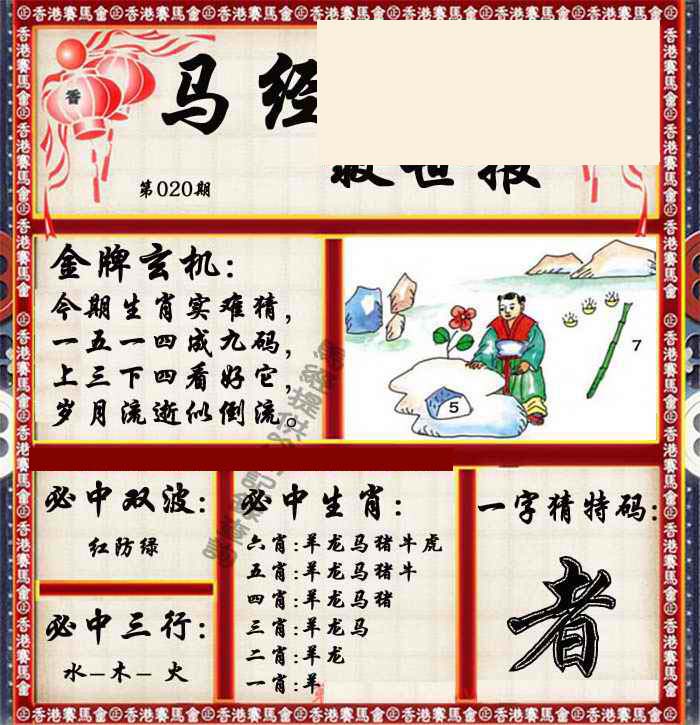 香港賽馬會
马经
救世报
第020期
香
金牌玄机:
今期生肖实难猜,
一五一四成九码,
上三下四看好它,
岁月流逝似倒流。
5
7
必中双波:
红防绿
必中三行:
水-木-火
必中生肖:
六肖:羊龙马猪牛虎
五肖:羊龙马猪牛
四肖:羊龙马猪
三肖:羊龙马
二肖:羊龙
一肖:羊
一字猜特码:
者